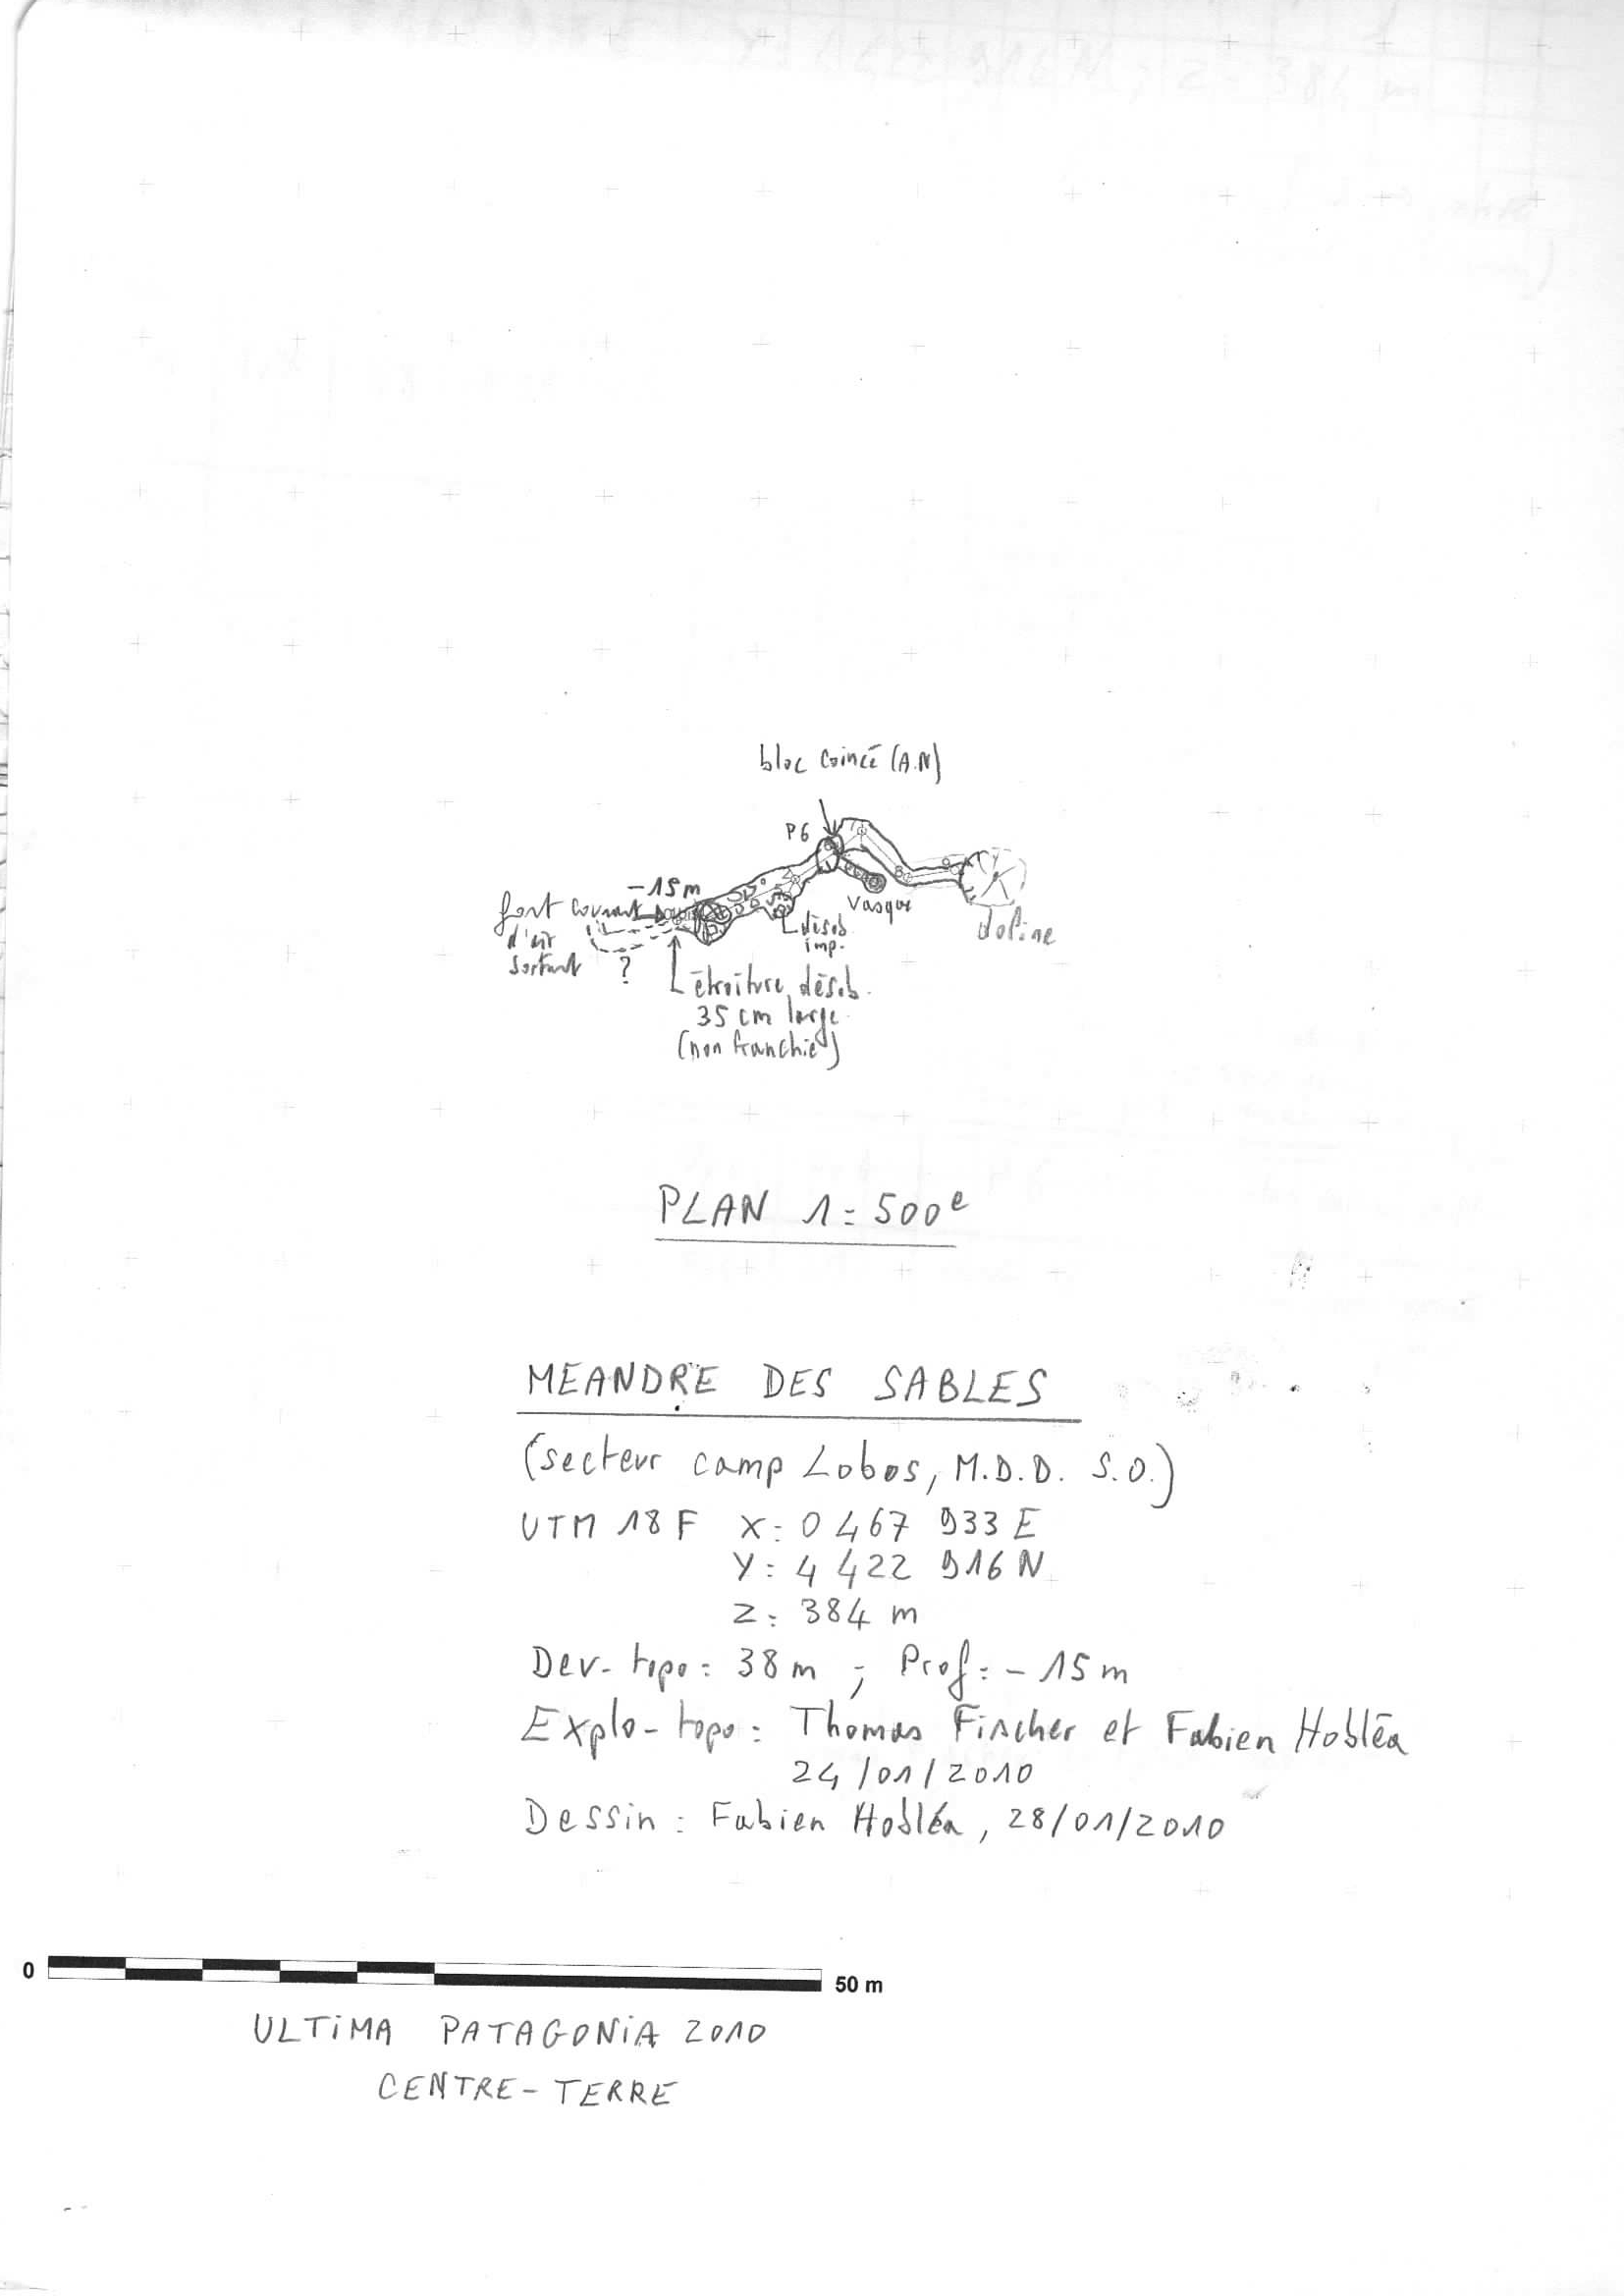 bloc coincé (A.N)
P6
-15m
fort courant
d'air
sortant
?
Vasque
désob.
imp.
doline
étroiture désob.
35 cm large
(non franchie)
PLAN 1=500e
MEANDRE DES SABLES
(secteur camp Lobos, M.D.D. S.O.)
UTM 18 F X: 0 467 933 E
Y: 4 422 916 N
Z: 384 m
Dev- topo: 38 m ; Prof: -15 m
Explo-topo: Thomas Fischer et Fabien Hobléa
24/01/2010
Dessin: Fabien Hobléa, 28/01/2010
0 50 m
ULTiMA PATAGONiA 2010
CENTRE-TERRE